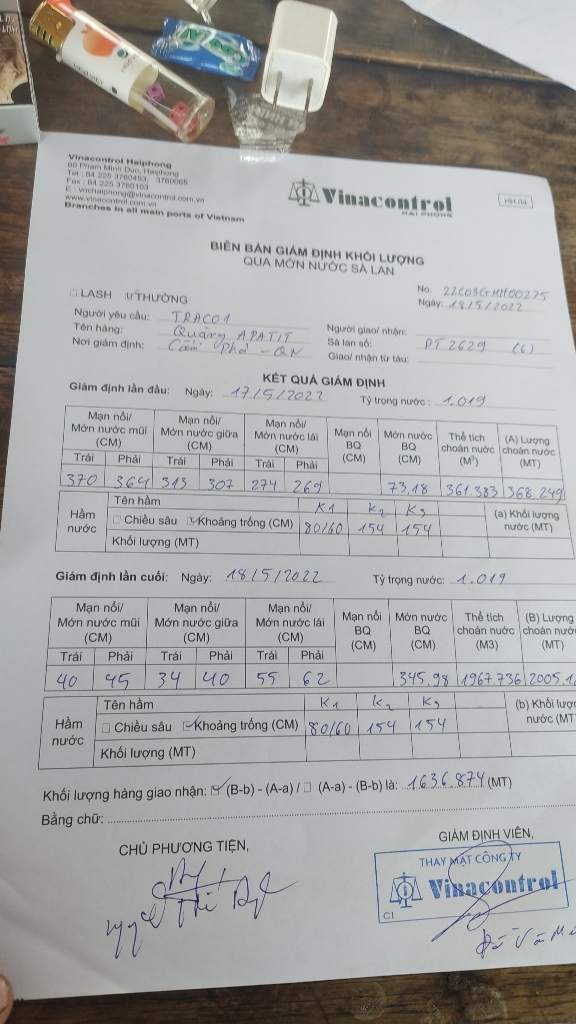 Vinacontrol Haiphong
80 Pham Minh Duc, Haiphong
Tel : 84 225 3760453, 3760065
Fax : 84 225 3760103
E : vnchaiphong@vinacontrol.com.vn
www.vinacontrol.com.vn
Branches in all main ports of Vietnam
Vinacontrol
HAI PHONG
HH 04
BIÊN BẢN GIÁM ĐỊNH KHỐI LƯỢNG
QUA MỚN NƯỚC SÀ LAN
No. 22C03GHH00275
LASH THƯỜNG
Ngày: 18/5/2022
Người yêu cầu: TRACO1
Người giao/ nhận:
Tên hàng: Quặng APATIT
Sà lan số: PT 2629 (6)
Nơi giám định: Cẩm Phả - QN
Giao/ nhận từ tàu:
KẾT QUẢ GIÁM ĐỊNH
Giám định lần đầu: Ngày: 17/5/2022 Tỷ trọng nước: 1.019
Mạn nổi/ Mớn nước mũi (CM) Mạn nổi/ Mớn nước giữa (CM) Mạn nổi/ Mớn nước lái (CM) Mạn nổi BQ (CM) Mớn nước BQ (CM) Thể tích choán nước (M³) (A) Lượng choán nước (MT)
Trái Phải Trái Phải Trái Phải
370 364 313 307 274 269 73,18 361.383 368.249
Hầm nước
Tên hầm K1 K2 K3
Chiều sâu Khoảng trống (CM) 80/60 154 154
(a) Khối lượng nước (MT)
Khối lượng (MT)
Giám định lần cuối: Ngày: 18/5/2022 Tỷ trọng nước: 1.019
Mạn nổi/ Mớn nước mũi (CM) Mạn nổi/ Mớn nước giữa (CM) Mạn nổi/ Mớn nước lái (CM) Mạn nổi BQ (CM) Mớn nước BQ (CM) Thể tích choán nước (M3) (B) Lượng choán nước (MT)
Trái Phải Trái Phải Trái Phải
40 45 34 40 55 62 345.98 1967.736 2005.1
Hầm nước
Tên hầm K1 K2 K3
Chiều sâu Khoảng trống (CM) 80/60 154 154
(b) Khối lượn nước (MT
Khối lượng (MT)
Khối lượng hàng giao nhận: (B-b) - (A-a) / (A-a) - (B-b) là: 1636.874 (MT)
Bằng chữ:
CHỦ PHƯƠNG TIỆN,
GIÁM ĐỊNH VIÊN,
THAY MẶT CÔNG TY
Vinacontrol
C1